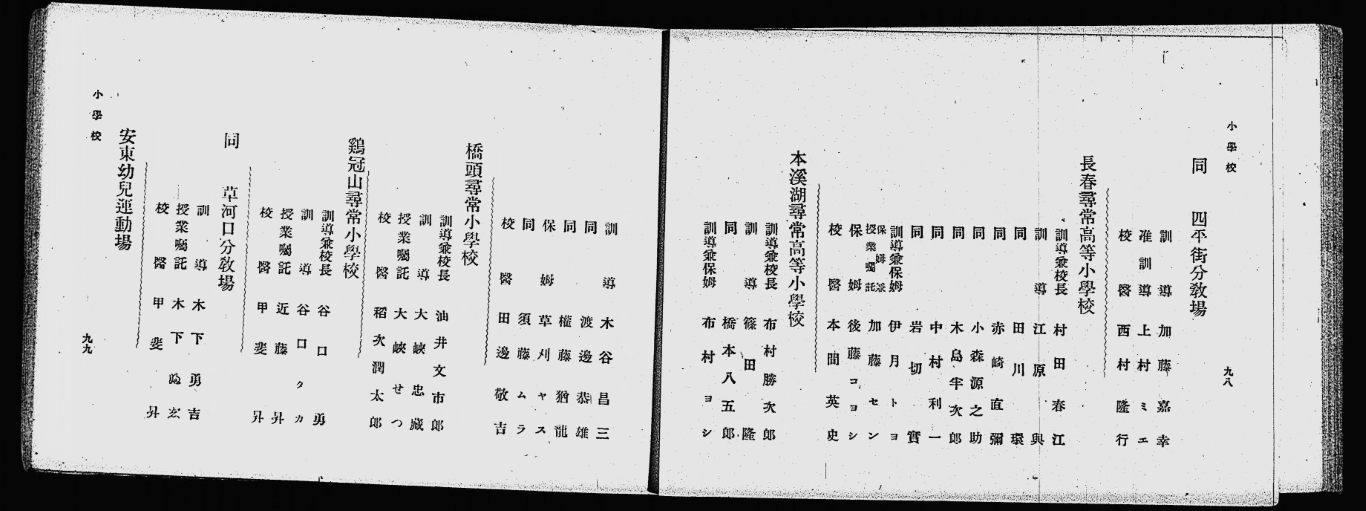 小學校
九八
同　四平街分敎場
訓導　加藤嘉幸
准訓導　上村ミエ
校醫　西村隆行
長春尋常高等小學校
訓導兼校長　村田春江
訓導　江原與
同　田川環
同　赤崎直彌
同　小森源之助
同　木島半次郎
同　中村利一
同　岩切實
訓導兼保姆　伊月トヨ
保姆兼授業囑託　加藤セン
保姆　後藤コヨシ
校醫　本間英史
本溪湖尋常高等小學校
訓導兼校長　布村勝次郎
訓導　篠田隆
同　橋本八五郎
訓導兼保姆　布村ヨシ
訓導　木谷昌三
同　渡邊恭雄
同　權藤猶龍
保姆　草刈ヤス
同　須藤ムラ
校醫　田邊敬吉
橋頭尋常小學校
訓導兼校長　油井文市郎
訓導　大峽忠藏
授業囑託　大峽せつ
校醫　稻次潤太郎
鷄冠山尋常小學校
訓導兼校長　谷口勇
訓導　谷口タカ
授業囑託　近藤昇
校醫　甲斐昇
同　草河口分敎場
訓導　木下勇吉
授業囑託　木下ぬ
校醫　甲斐昇
安東幼兒運動場
小學校
九九